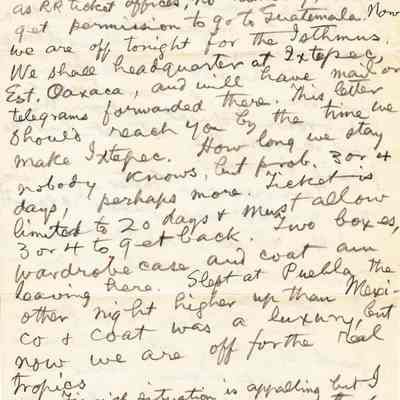 as RR ticket offices, no
get permission to go to Guatemala. Now
we are off tonight for the Isthmus.
We shall headquarter at Ixtepec,
Est. Oaxaca, and will have mail or
telegrams forwarded there. This letter
should reach you by the time we
make Ixtepec. How long we stay
nobody knows, but prob. 3 or 4
days, perhaps more. Ticket is
limited to 20 days & must allow
3 or 4 to get back. Two boxes,
wardrobe case and coat am
leaving here. Slept at Puebla the
other night higher up than Mexi-
co & coat was a luxury, but
now we are off for the real
tropics
situation is appalling but I